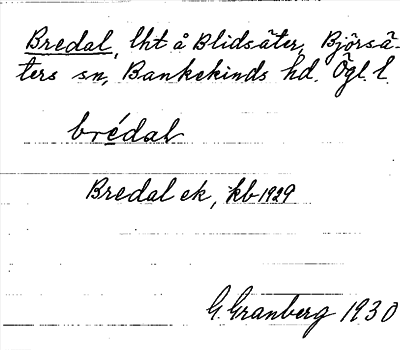 Bredal, lht å Blidsäter, Björsä-
ters sn, Bankekinds hd. Ögl. l.
brédal
Bredal ek, kb 1929
G. Granberg 1930